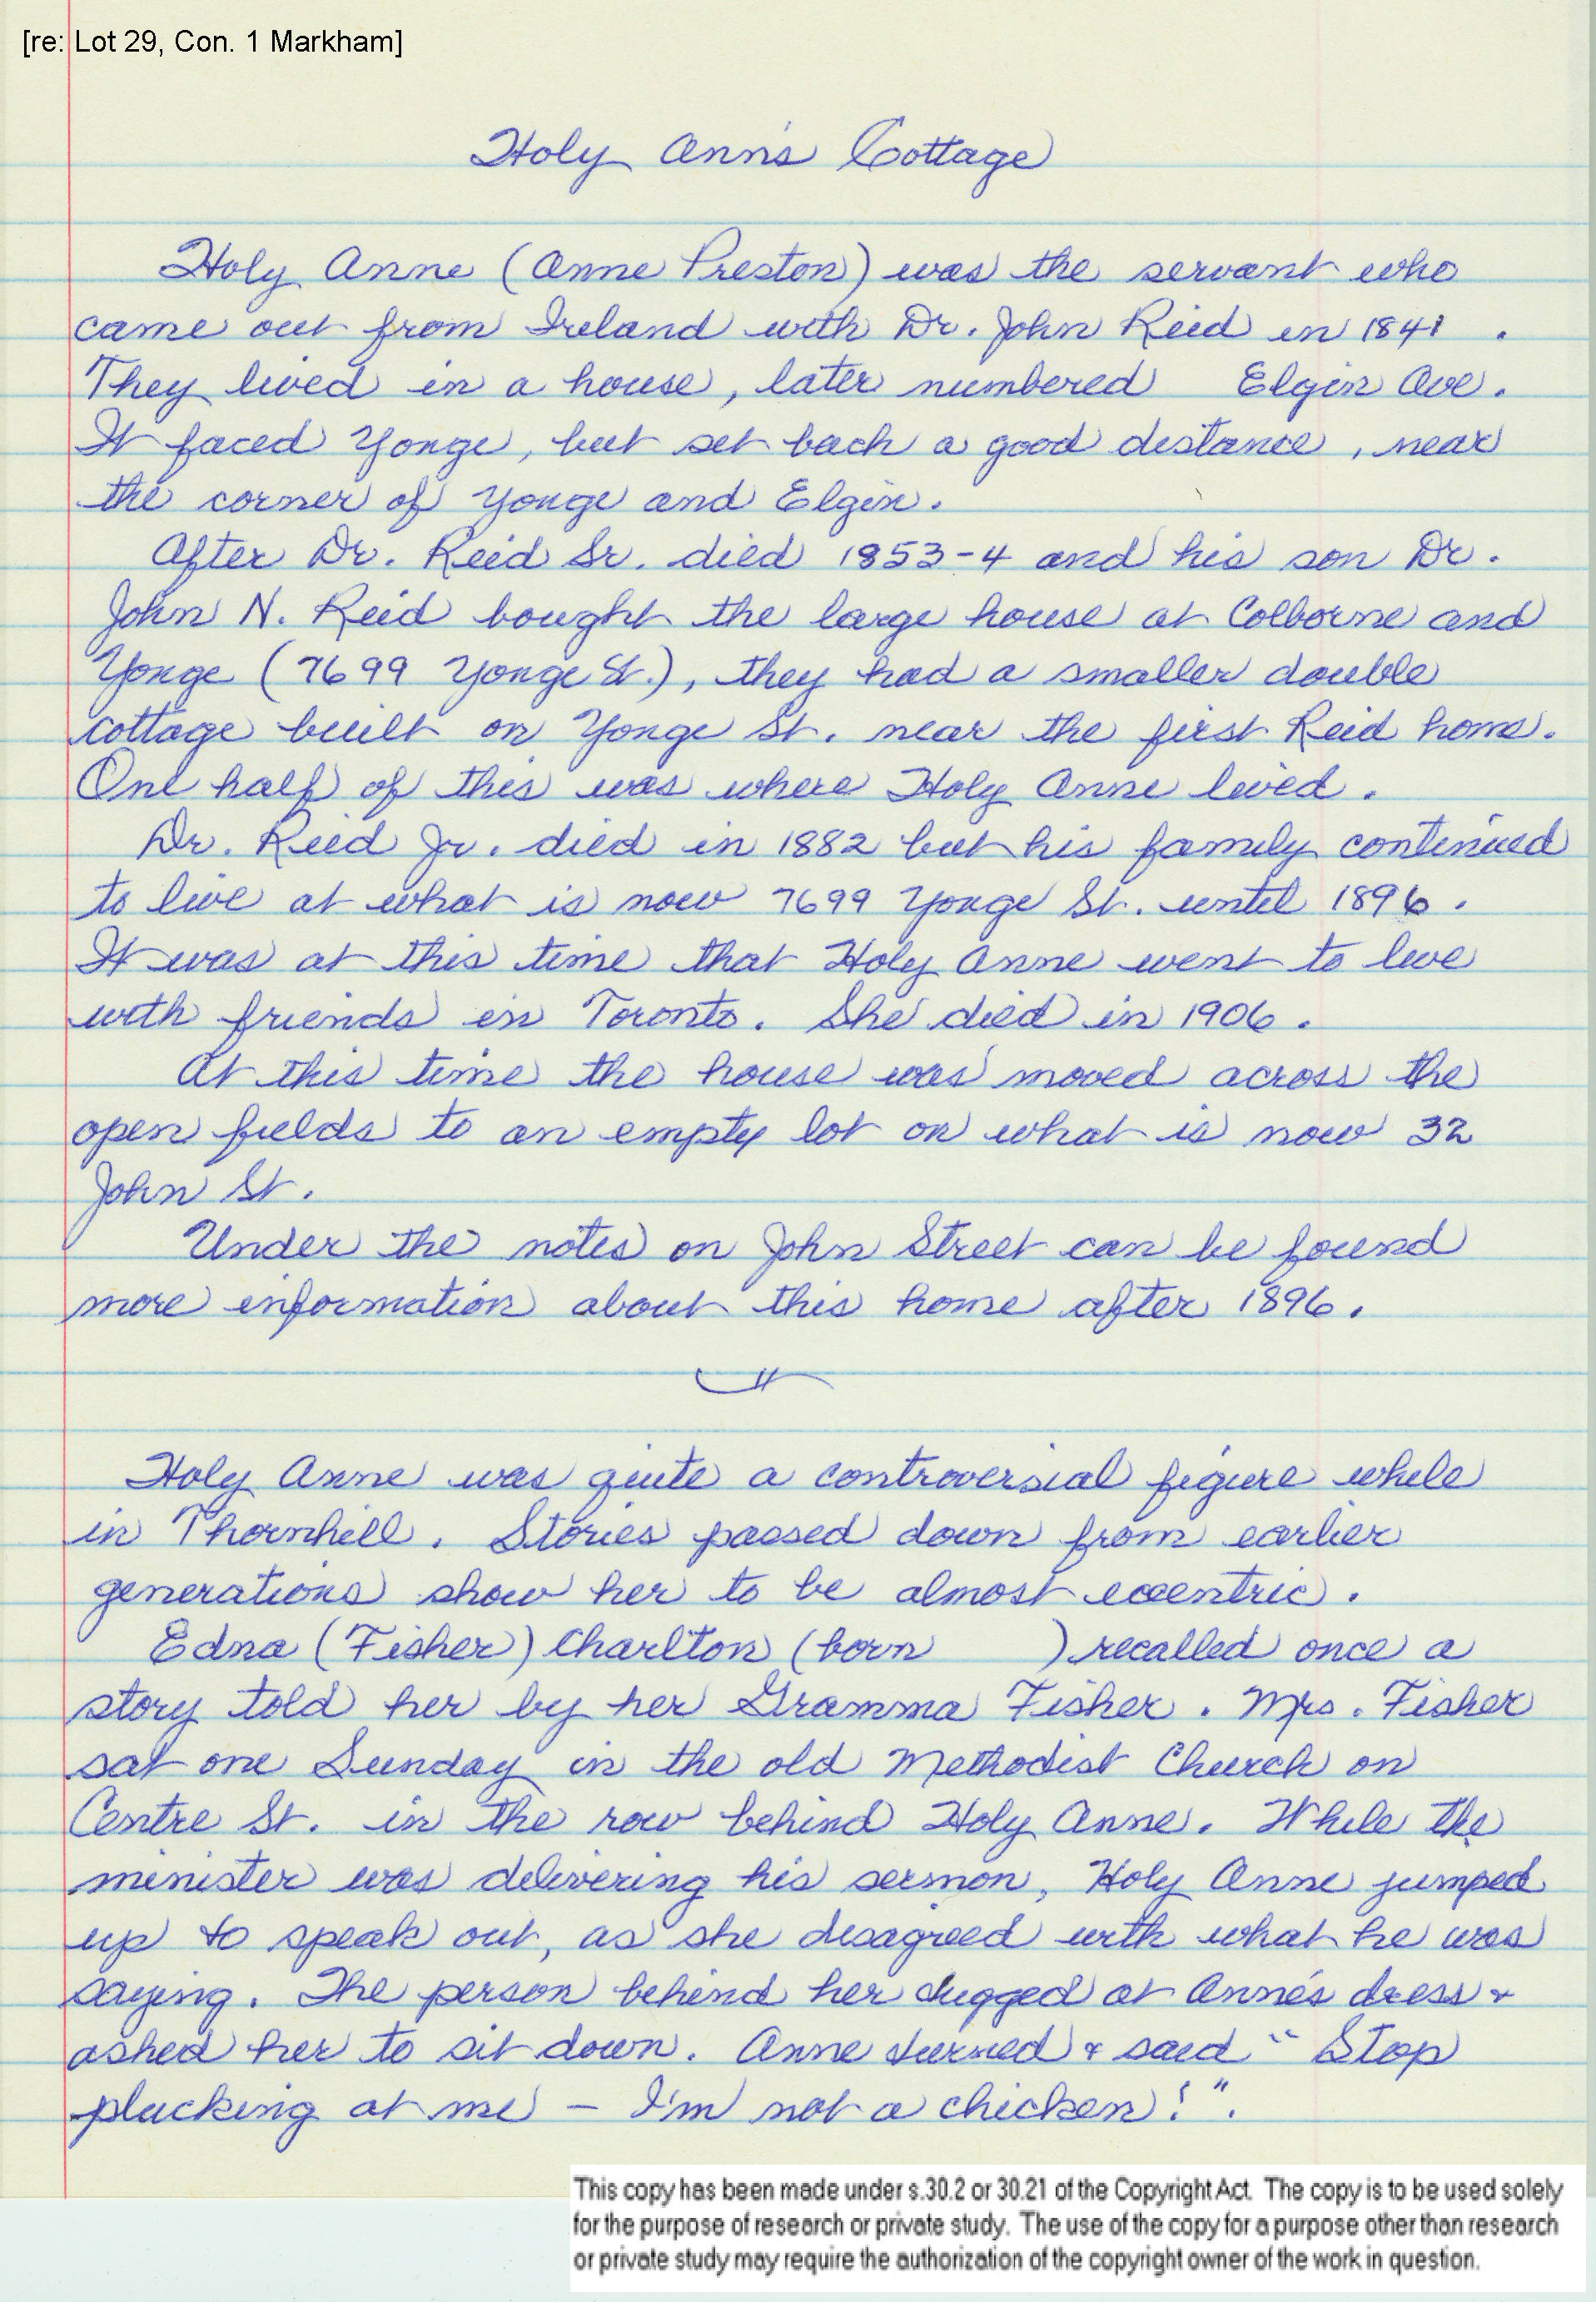 [re: Lot 29, Con. 1 Markham]
Holy Ann's Cottage
Holy Anne (Anne Preston) was the servant who
came out from Ireland with Dr. John Reid in 1841 .
They lived in a house, later numbered Elgin Ave.
It faced Yonge, but set back a good distance, near
the corner of Yonge and Elgin.
After Dr. Reid Sr. died 1853-4 and his son Dr.
John N. Reid bought the large house at Colborne and
Yonge (7699 Yonge St.), they had a smaller double
cottage built on Yonge St. near the first Reid home.
One half of this was where Holy Anne lived.
Dr. Reid Jr. died in 1882 but his family continued
to live at what is now 7699 Yonge St. until 1896.
It was at this time that Holy Anne went to live
with friends in Toronto. She died in 1906.
At this time the house was moved across the
open fields to an empty lot on what is now 32
John St.
Under the notes on John Street can be found
more information about this home after 1896.
Holy Anne was quite a controversial figure while
in Thornhill. Stories passed down from earlier
generations show her to be almost eccentric.
Edna (Fisher) Charlton (born ) recalled once a
story told her by her Gramma Fisher. Mrs. Fisher
sat one Sunday in the old Methodist Church on
Centre St. in the row behind Holy Anne. While the
minister was delivering his sermon, Holy Anne jumped
up to speak out, as she disagreed with what he was
saying. The person behind her tugged at Anne's dress &
asked her to sit down. Anne turned & said "Stop
plucking at me – I'm not a chicken!".
This copy has been made under s.30.2 or 30.21 of the Copyright Act. The copy is to be used solely
for the purpose of research or private study. The use of the copy for a purpose other than research
or private study may require the authorization of the copyright owner of the work in question.